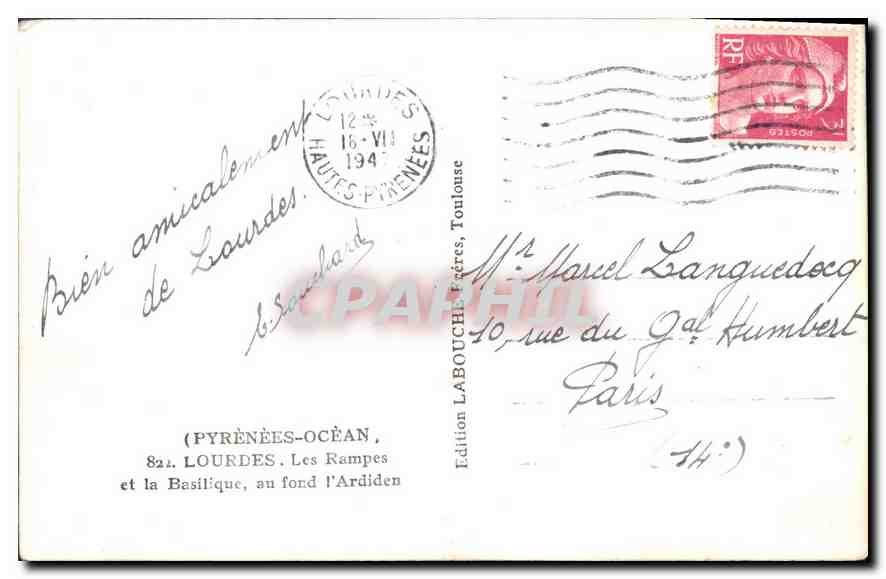 Bien amicalement
de Lourdes.
E. Souchard
(PYRÈNÈES-OCÈAN,
LOURDES. Les Rampes
et la Basilique, au fond l'Ardiden
LOURDES
12 *
16-VII
194
HAUTES-PYRENÉES
Edition LABOUCHE Frères, Toulouse
RF
POSTES
Mr Marcel Languedocq
10, rue du Gal Humbert
Paris
(14e)
CPAPHIL